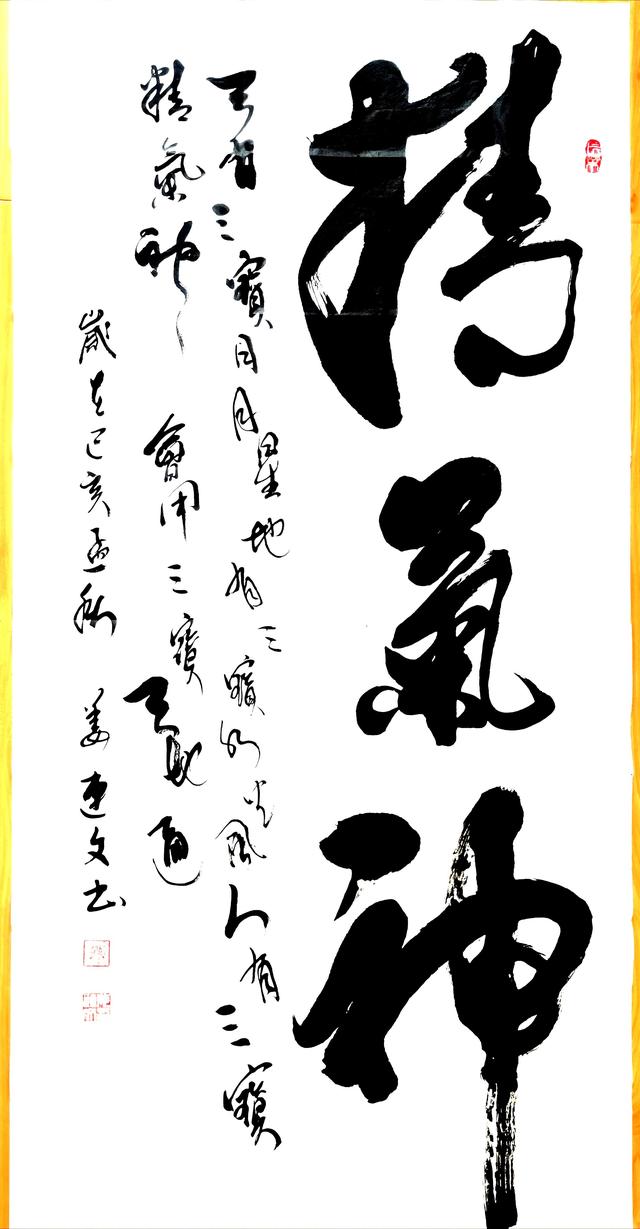 精氣神
天有三寶日月星地有三寶水火風人有三寶
精氣神會用三寶天地通
歲在己亥孟秋 姜連文書